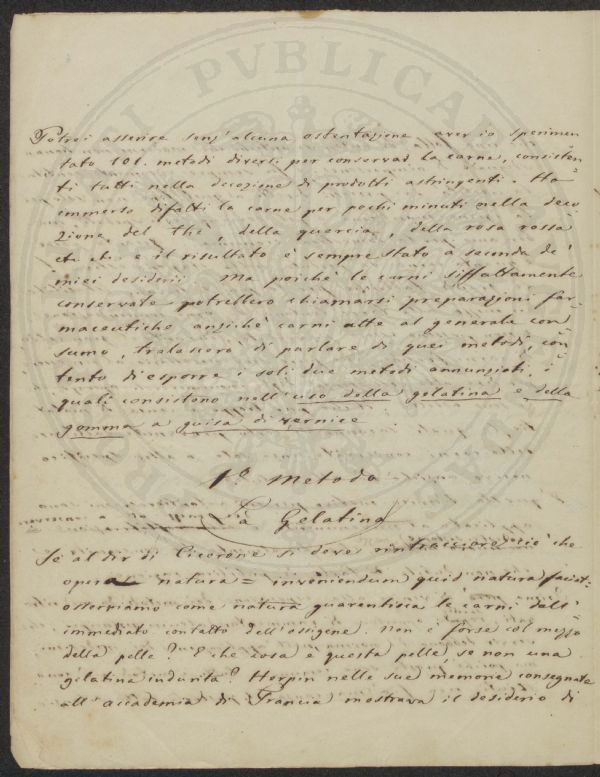 Potrei asserire senz'alcuna ostentazione aver io sperimen
tato 101. metodi diversi per conservar la carne, consisten-
ti tutti nella decozione di prodotti astringenti. Ho
immerso difatti la carne per pochi minuti nella deco
zione del thè, della quercia, della rosa rossa
etc. etc. e il risultato è sempre stato a seconda de'
miei desiderii. Ma poichè le carni siffattamente
conservate potrebbero chiamarsi preparazioni far-
maceutiche anzichè carni atte al generale con
sumo, tralascerò di parlare di quei metodi, con
tento di esporre i soli due metodi annunziati, i
quali consistono nell'uso della gelatina e della
gomma a guisa di vernice
1º Metodo
La Gelatina
Se al dir di Cicerone si deve rintracciare ciò che
opera natura = inveniendum quid natura faciat=
osserviamo come natura guarentisca le carni dall'
immediato contatto dell'ossigene. Non è forse col mezzo
della pelle? E che cosa è questa pelle, se non una
gelatina indurita? Herpin nelle sue memorie consegnate
all'accademia di Francia mostrava il desiderio di